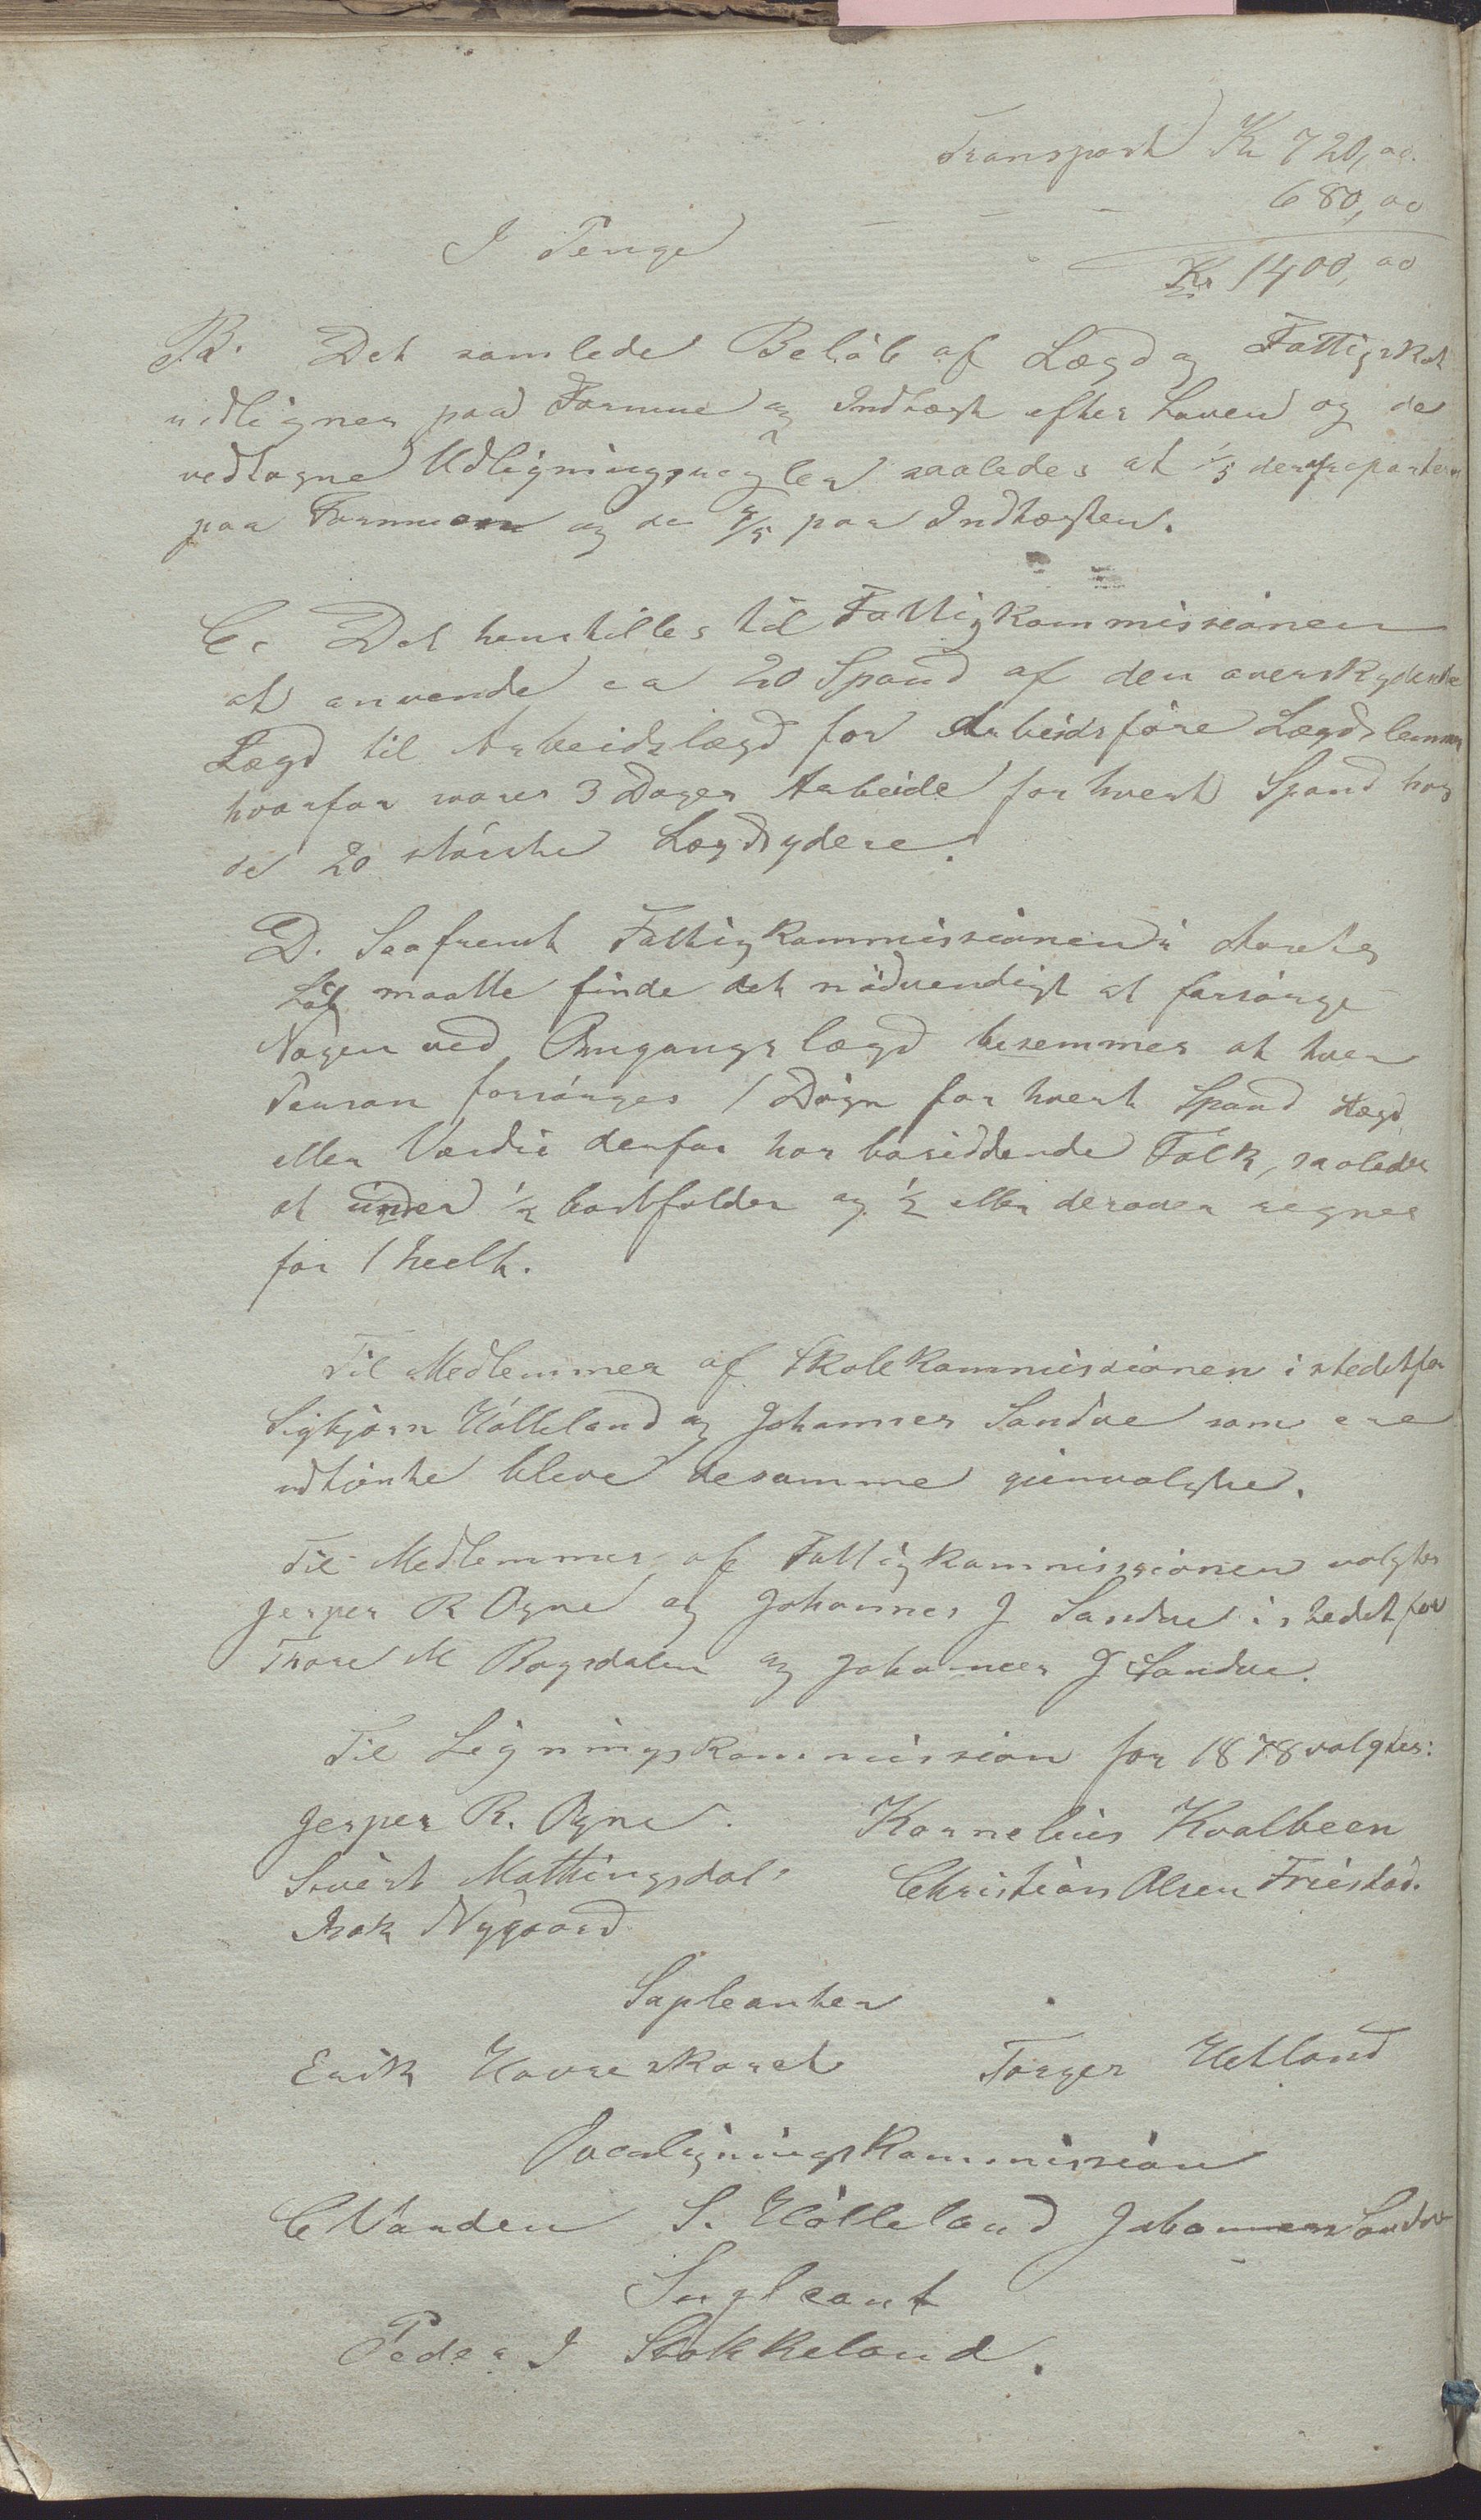 Transport Kr 720,00.
I Penge - - - 680,00
Kr 1400,00
B. Det samlede Beløb af Lægd og Fattigskat
udlignes paa Formue og Indtægt efter Loven og de
vedtagne Udligningsregler saaledes at 1/5 deraf reparteres
paa Formuen og de 4/5 paa Indtægten.
C. Det henstilles til Fattigkommissionen
at anvende ca 20 Spand af den overskydende
Lægd til Arbeidslægd for Arbeidsføre Lægdslemmer
hvorfor svares 3 Dages Arbeide for hvert Spand hos
de 20 største Lægdsydere.
D. Saafremt Fattigkommissionen i Aarets
Løb maatte finde det nødvendigt at forsørge
Nogen ved Omgangslægd bestemmes at hver
Person forsørges 1 Døgn for hvert Spand Lægd
eller Værdie derfor hos bosiddende Folk, saaledes
at under 1/2 bortfalder og 1/2 eller derover regnes
for 1 heelt.
Til Medlemmer af Skolekommissionen istedetfor
Sigbjørn Hølleland og Johannes Sandve som ere
udtjente bleve desamme gjenvalgte.
Til Medlemmer af Fattigkommissionen valgtes
Jesper R Ogne og Johannes J Sandve istedetfor
Thore M Bogsdalen og Johannes J Sandve.
Til Ligningskommission for 1878 valgtes:
Jesper R. Ogne. Kornelius Kvalbeen
Sivert Mattingsdal Christian Olsen Friestad.
Isak Nygaard
Supleanter
Erik Havreskaret Torger Hetland
Overligningskommission
C Vanden S. Hølleland Johannes Sandve
Supleant
Peder I Stokkeland.